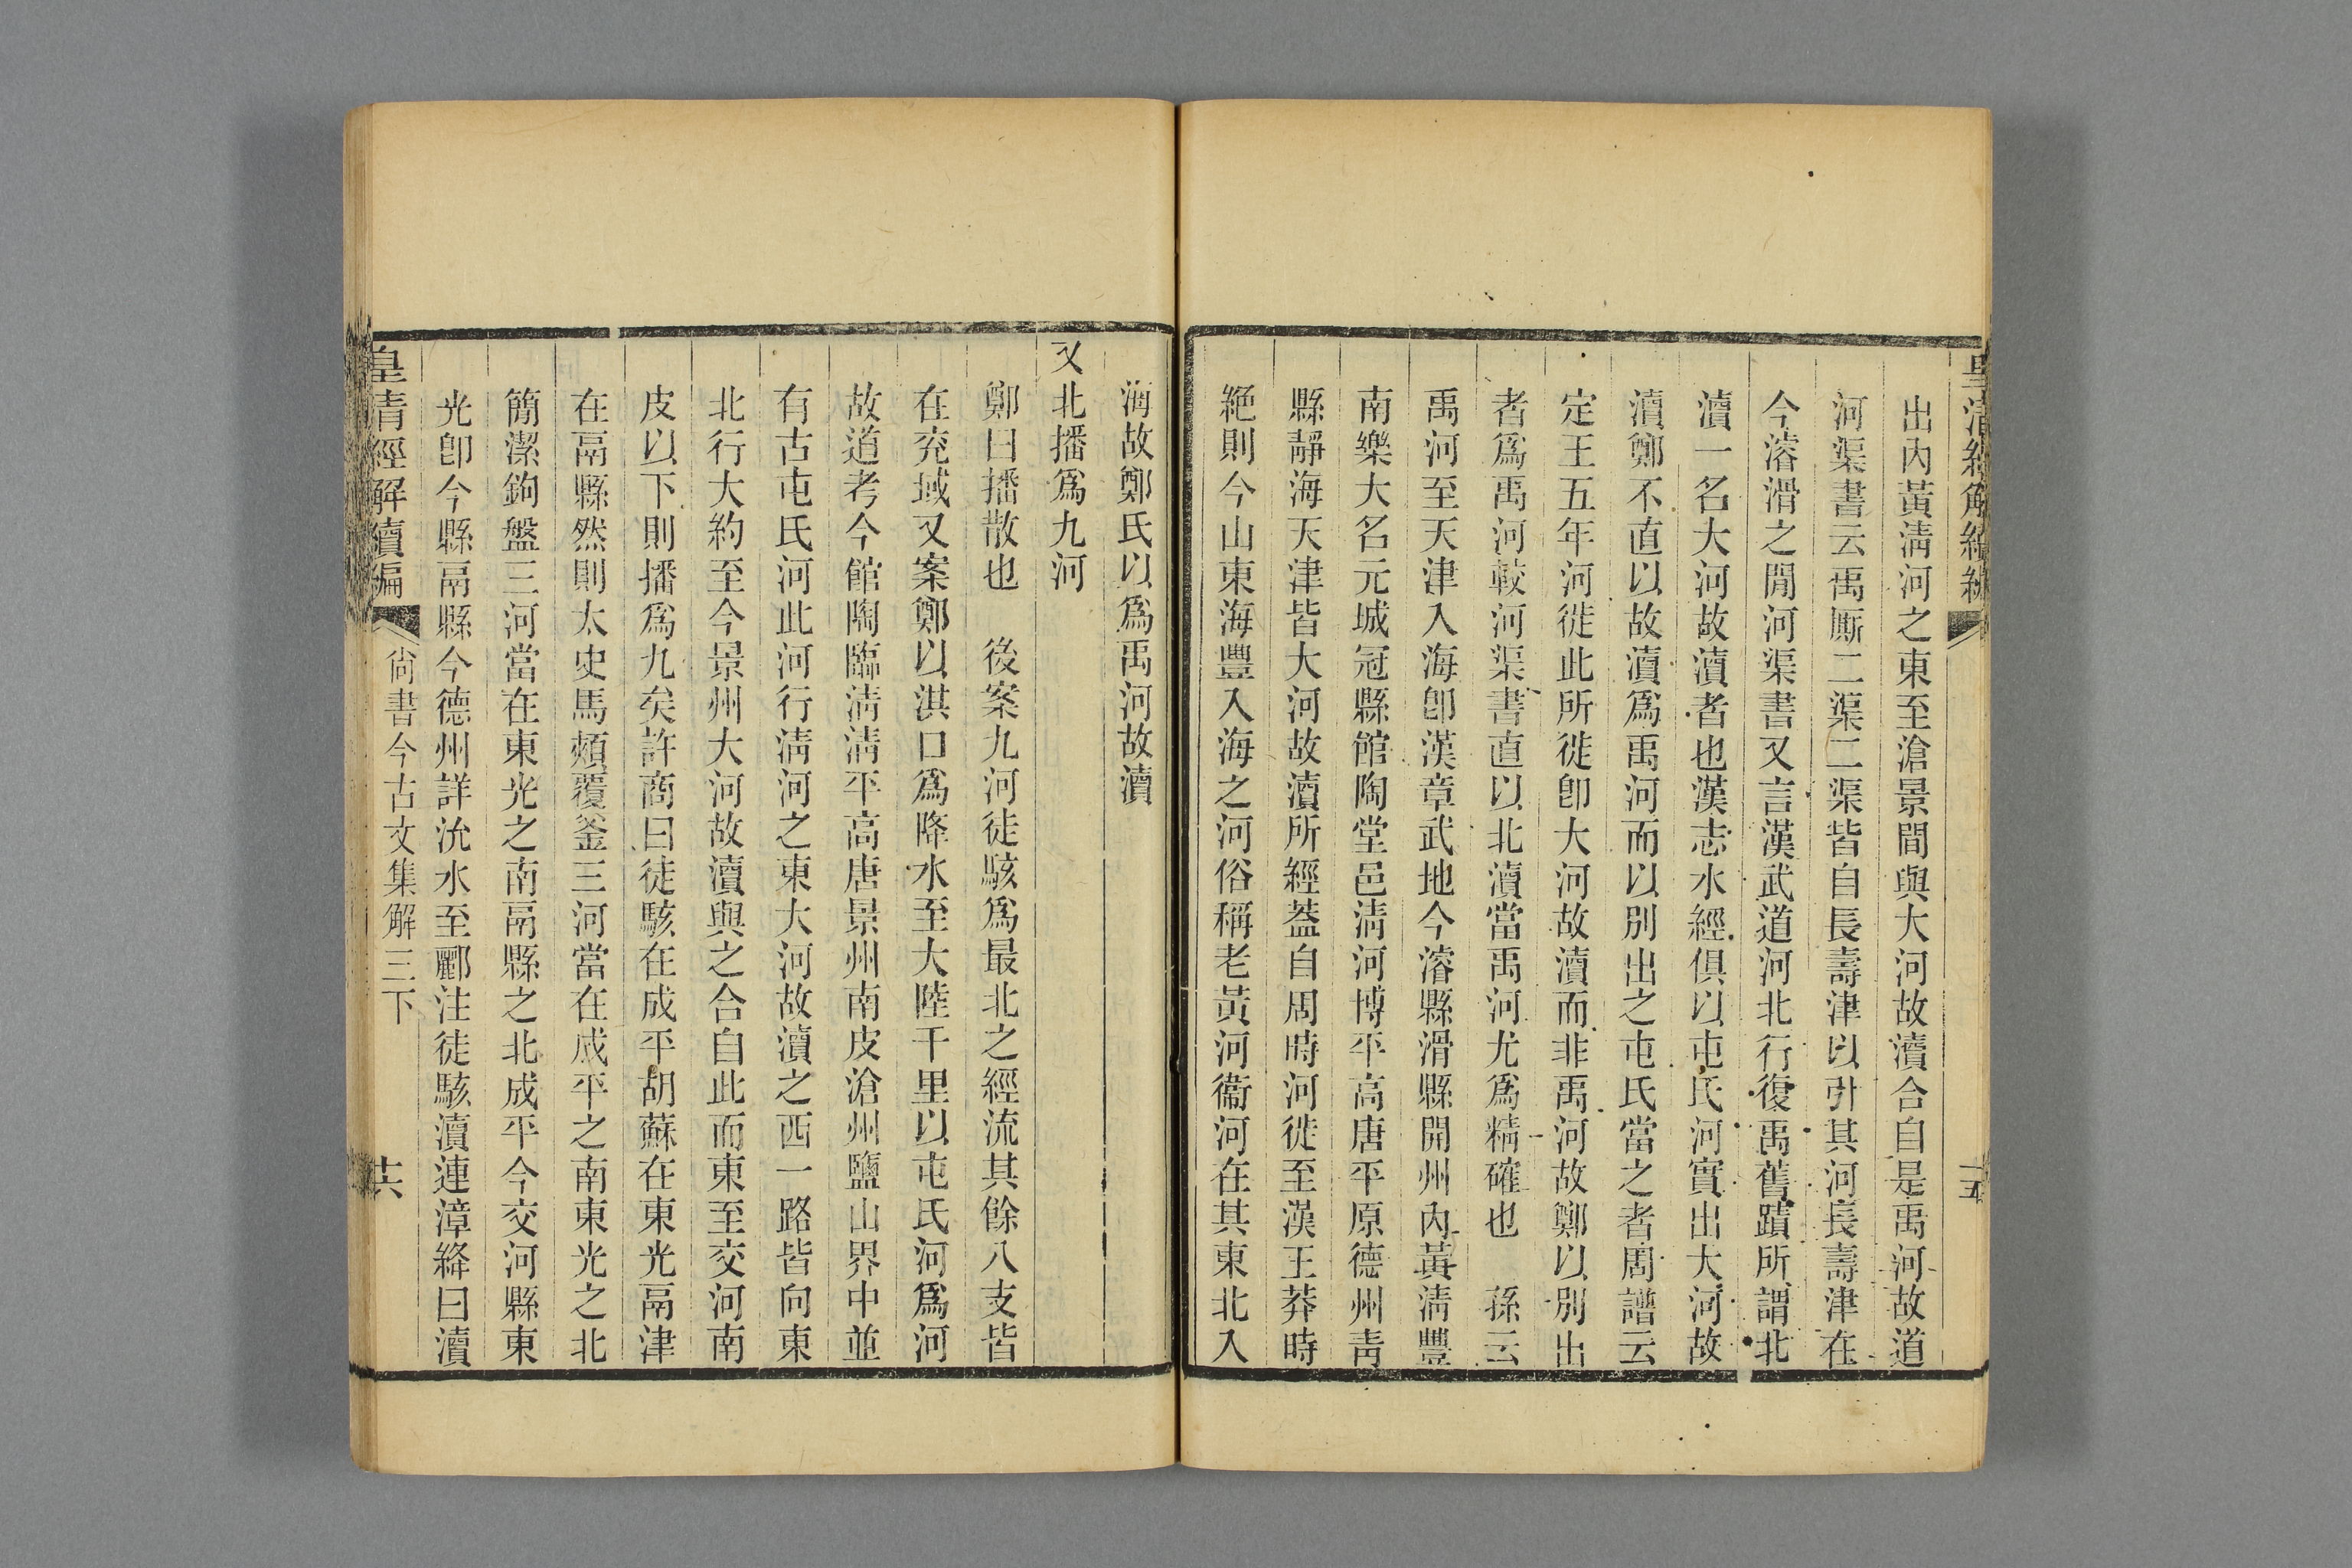 皇清經解續編
十五
出內黃淸河之東至滄景間與大河故瀆合自是禹河故道
河渠書云禹厮二渠二渠皆自長壽津以引其河長壽津在
今濬滑之閒河渠書又言漢武道河北行復禹舊蹟所謂北
瀆一名大河故瀆者也漢志水經俱以屯氏河實出大河故
瀆鄭不直以故瀆爲禹河而以別出之屯氏當之者周譜云
定王五年河徙此所徙卽大河故瀆而非禹河故鄭以別出
者爲禹河較河渠書直以北瀆當禹河尤爲精確也　孫云
禹河至天津入海卽漢章武地今濬縣滑縣開州內黃淸豐
南樂大名元城冠縣館陶堂邑淸河博平高唐平原德州靑
縣靜海天津皆大河故瀆所經葢自周時河徙至漢王莽時
絕則今山東海豐入海之河俗稱老黃河衞河在其東北入
海故鄭氏以爲禹河故瀆
又北播爲九河
鄭曰播散也　後案九河徒駭爲最北之經流其餘八支皆
在兗域又案鄭以淇口爲降水至大陸千里以屯氏河爲河
故道考今館陶臨淸淸平高唐景州南皮滄州鹽山界中並
有古屯氏河此河行淸河之東大河故瀆之西一路皆向東
北行大約至今景州大河故瀆與之合自此而東至交河南
皮以下則播爲九矣許商曰徒駭在成平胡蘇在東光鬲津
在鬲縣然則太史馬頰覆釜三河當在成平之南東光之北
簡潔鉤盤三河當在東光之南鬲縣之北成平今交河縣東
光卽今縣鬲縣今德州詳沇水至酈注徒駭瀆連漳絳曰瀆
皇清經解續編
尙書今古文集解三下
十六